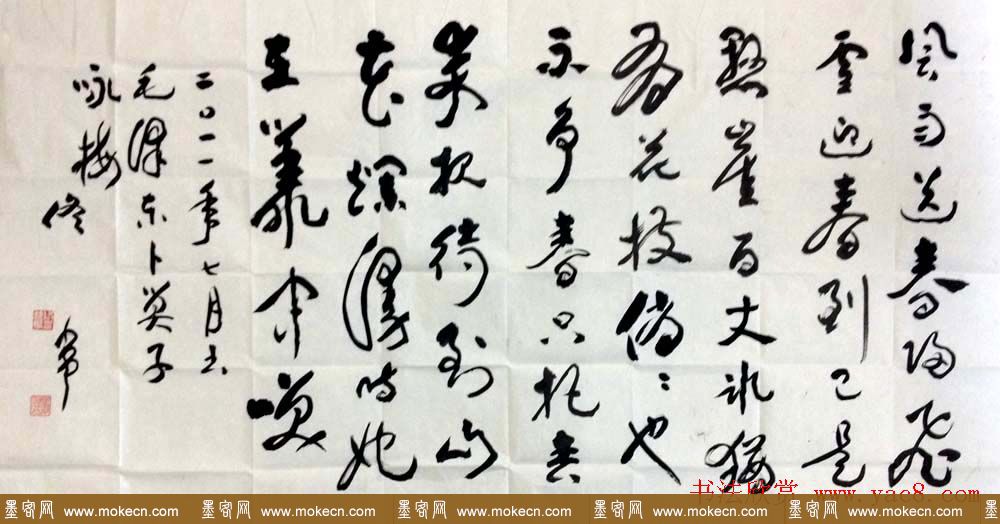 風雨送春归飛
雪迎春到已是
懸崖百丈冰猶
有花枝俏〻也
不争春只把春
来报待到山
花爛漫时她
在叢中笑
二〇一一年七月书
毛澤东卜算子
咏梅
书法欣赏 www.yac8.com
墨客网 www.mokecn.com 墨客网 www.mokecn.com 墨客网 www.mokecn.com 墨客网 www.mokecn.com